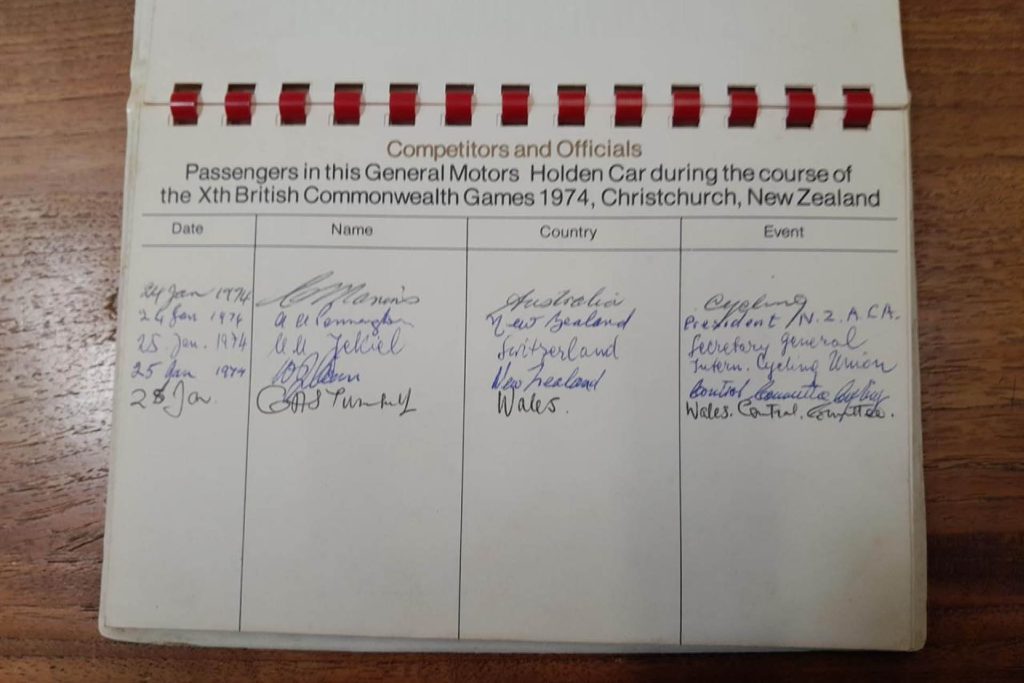 Competitors and Officials
Passengers in this General Motors Holden Car during the course of
the Xth British Commonwealth Games 1974, Christchurch, New Zealand
Date Name Country Event
24 Jan 1974 Australia Cycling
24 Jan 1974 New Zealand President N.Z.A.C.A.
25 Jan. 1974 Jekiel Switzerland Secretary general
Intern. Cycling Union
25 Jan 1974 New Zealand Control Committee Cycling
28 Jan. Wales. Wales. Control. Committee.